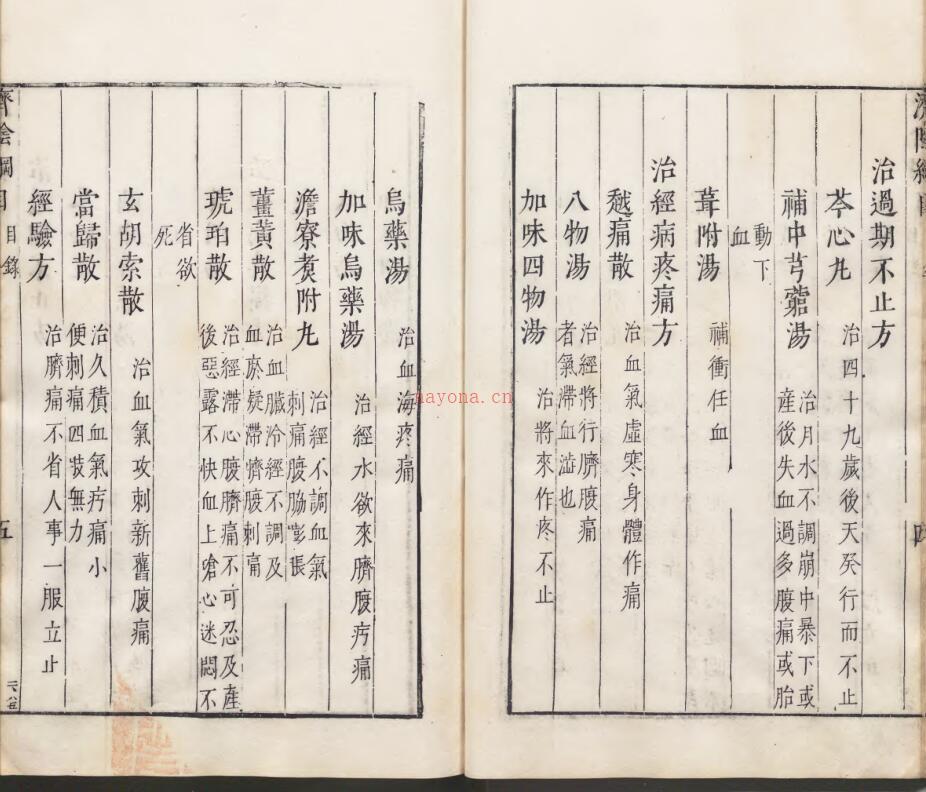 治過期不止方
芩心丸 治四十九歲後天癸行而不止
補中芎藭湯 治月水不調崩中暴下或
產後失血過多腹痛或胎
動下
血
葺附湯 補衝任血
治經病疼痛方
越痛散 治血氣虛寒身體作痛
八物湯 治經將行臍腹痛
者氣滯血澁也
加味四物湯 治將來作疼不止
四
烏藥湯 治血海疼痛
加味烏藥湯 治經水欲來臍腹㽲痛
澹寮煑附丸 治經不調血氣
刺痛腹脇彭張
薑黃散 治血臟冷經不調及
血瘀凝滯臍腹刺痛
琥珀散 治經滯心腹臍痛不可忍及產
後惡露不快血上嗆心迷悶不
省欲
死
玄胡索散 治血氣攻刺新舊腹痛
當歸散 治久積血氣㽲痛小
便刺痛四裝無力
經驗方 治臍痛不省人事一服立止
濟陰綱目
目錄
五
nayona.cn